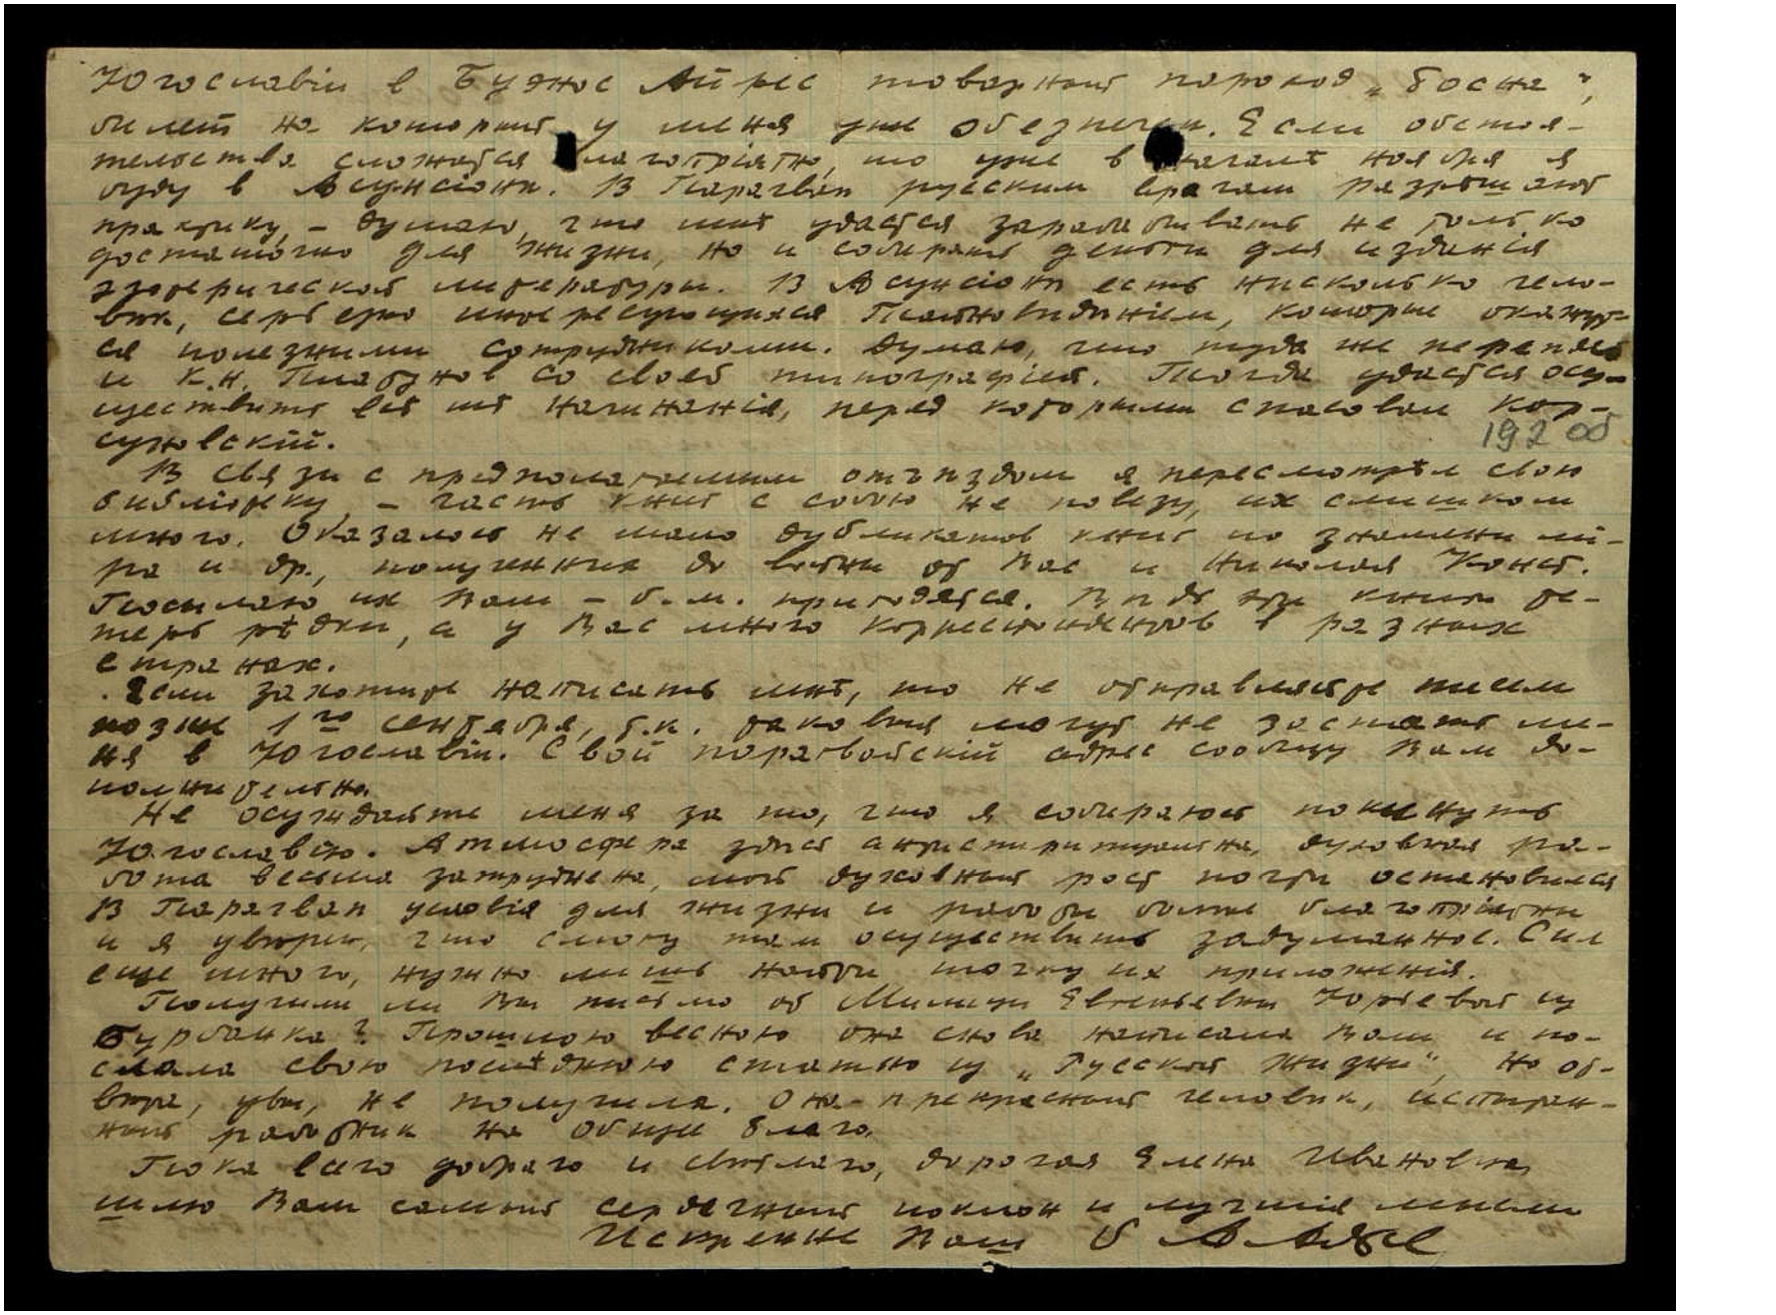 Югославіи в Буэнос Айрес товарный пароход „Босна“,
билет на который у меня уже обезпечен. Если обстоя-
тельства сложатся благопріятно, то уже в началѣ ноября я
буду в Асунсіони. В Парагваѣ русским врачам разрѣшают
практику, – думаю, что мнѣ удастся зарабатывать не только
достаточно для жизни, но и собирать деньги для изданія
эзотерической литературы. В Асунсіони есть нѣсколько чело-
вѣк, серьезно интересующихся Тайновидѣніем, которые окажут-
ся полезными сотрудниками. Думаю, что туда же переѣдет
и К.Н. со своей типографіей. Тогда удастся осу-
ществить всѣ тѣ начинанія, перед которыми спасовал Кор-
суновскій.
192 об
В связи с предполагаемым отъѣздом я пересмотрѣл свою
библіотеку, – часть книг с собою не повезу, их слишком
много. Оказалось не мало дубликатов книг по знамени ми-
ра и др., полученных до войны от Вас и Николая Конст.
Посылаю их Вам – б.м. пригодятся. Вѣдь эти книги те-
перь рѣдки, а у Вас много корреспондентов в разных
странах.
Если захотите написать мнѣ, то не отправляйте писем
позже 1го сентября, т.к. таковыя могут не застать ме-
ня в Югославіи. Свой парагвайскій адрес сообщу Вам до-
полнительно.
Не осуждайте меня за то, что я собираюсь покинуть
Югославію. Атмосфера здѣсь антиспиритуальна, духовная ра-
бота весьма затруднена, мой духовный рост почти остановился
В Парагваѣ условія для жизни и работы болѣе благопріятны
и я увѣрен, что смогу там осуществить задуманное. Сил
еще много, нужно лишь найти точку их приложенія.
Получили ли Вы письмо от Милицы Евгеньевны Юрьевой из
Бурбанка? Прошлою весною она снова написала Вам и по-
слала свою послѣднюю статью из „Русской Жизни“, но от-
вѣта, увы, не получила. Она – прекрасный человѣк, искрен-
ный работник на общее благо.
Пока всего добраго и свѣтлаго, дорогая Елена Ивановна,
шлю Вам самый сердечный поклон и лучшія мысли
Искренне Ваш А. Асѣев